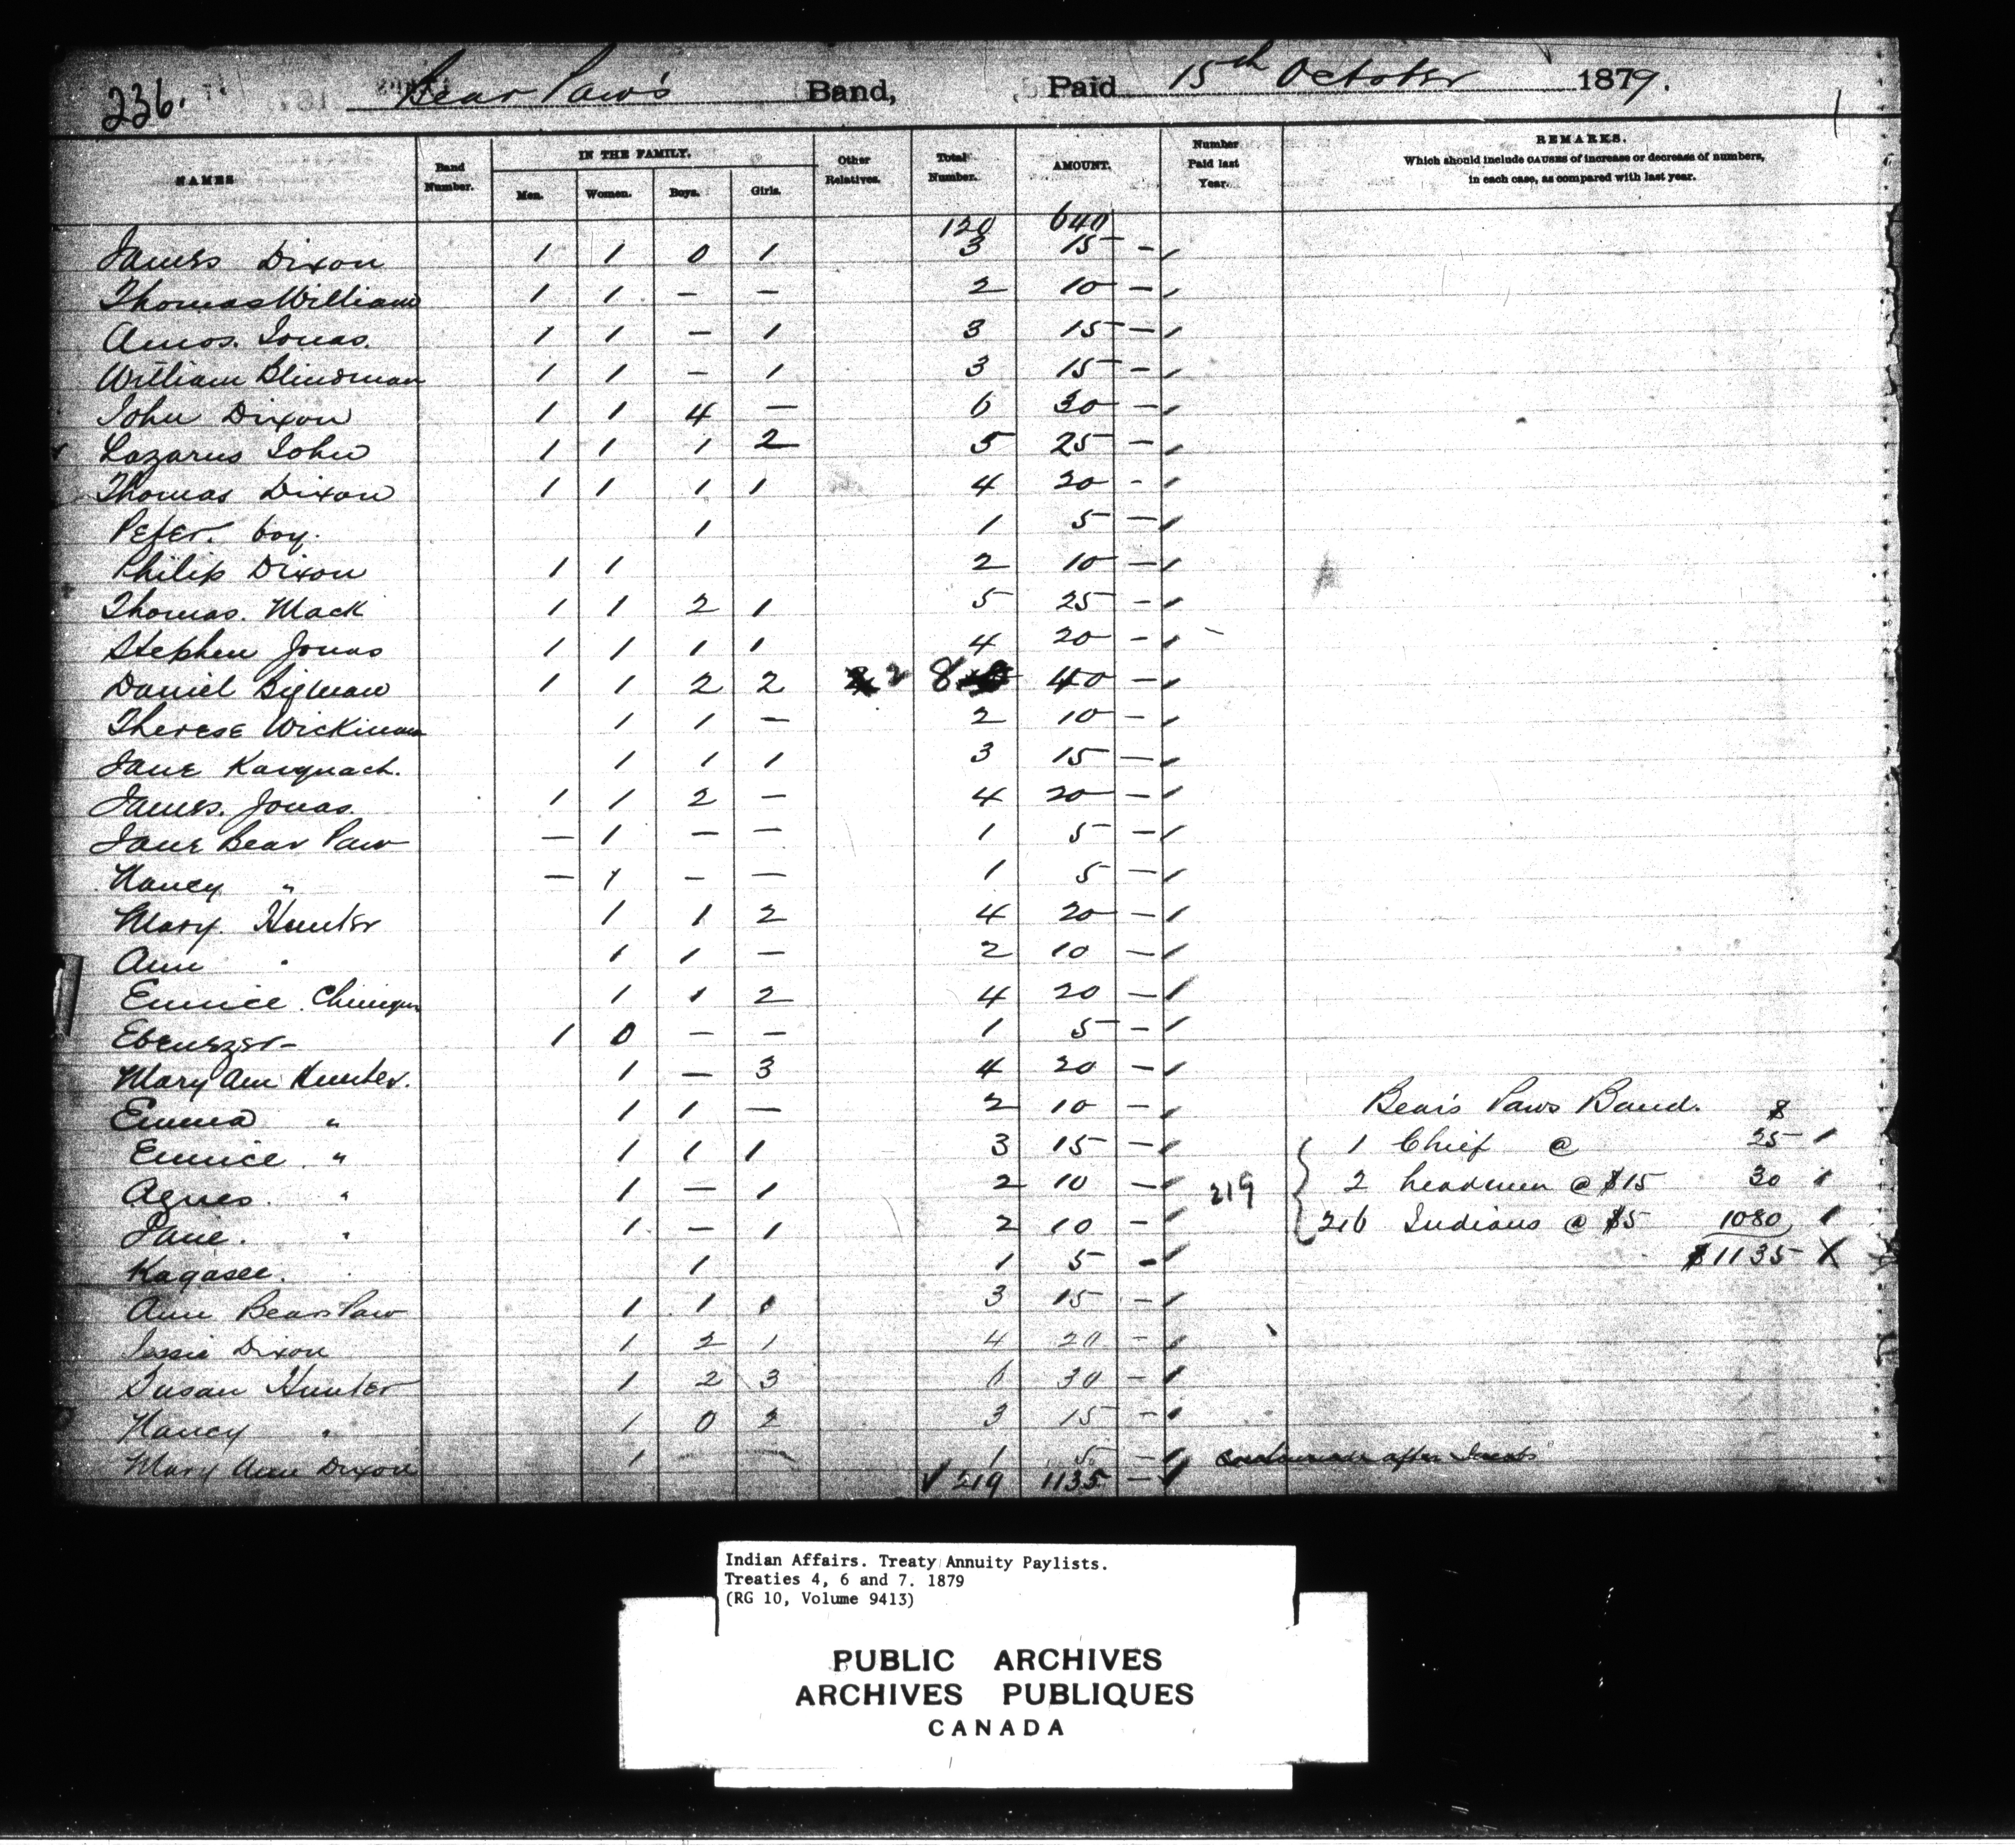 236. Bear Paw's Band, Paid 15th October 1879.
NAMES Band Number. IN THE FAMILY. Men. Women. Boys. Girls. Other Relatives. Total Number. AMOUNT. Number Paid last Year. REMARKS. Which should include CAUSES of increase or decrease of numbers, in each case, as compared with last year.
120 640
James Dixon 1 1 0 1 3 15 -
Thomas William 1 1 - - 2 10 -
Amos. Jonas. 1 1 - 1 3 15 -
William Blindman 1 1 - 1 3 15 -
John Dixon 1 1 4 - 6 30 -
Lazarus John 1 1 1 2 5 25 -
Thomas Dixon 1 1 1 1 4 20 -
Peter. boy. 1 1 5 -
Philip Dixon 1 1 2 10 -
Thomas. Mack 1 1 2 1 5 25 -
Stephen Jonas 1 1 1 1 4 20 -
Daniel Bigman 1 1 2 2 2 8 40 -
Therese 1 1 - 2 10 -
Jane 1 1 1 3 15 -
James. Jonas. 1 1 2 - 4 20 -
Jane Bear Paw - 1 - - 1 5 -
Nancy " - 1 - - 1 5 -
Mary. Hunter 1 1 2 4 20 -
Ann " 1 1 - 2 10 -
Eunice 1 1 2 4 20 -
Ebenezer- 1 0 - - 1 5 -
Mary Ann Hunter. 1 - 3 4 20 -
Emma " 1 1 - 2 10 - Bear's Paws Band. $
Eunice. " 1 1 1 3 15 - 1 Chief @ 25
Agnes. " 1 - 1 2 10 - 219 2 headmen @ $15 30
Jane. " 1 - 1 2 10 - 216 Indians @ $5 1080
Kagasee. 1 1 5 - $1135 X
Ann Bears Paw 1 1 1 3 15 -
Jessie Dixon 1 2 1 4 20 -
Susan Hunter 1 2 3 6 30 -
Nancy " 1 0 2 3 15 -
Mary Ann Dixon 1 - - 1 5 -
✓ 219 1135 -
Indian Affairs. Treaty Annuity Paylists.
Treaties 4, 6 and 7. 1879
(RG 10, Volume 9413)
PUBLIC ARCHIVES
ARCHIVES PUBLIQUES
CANADA